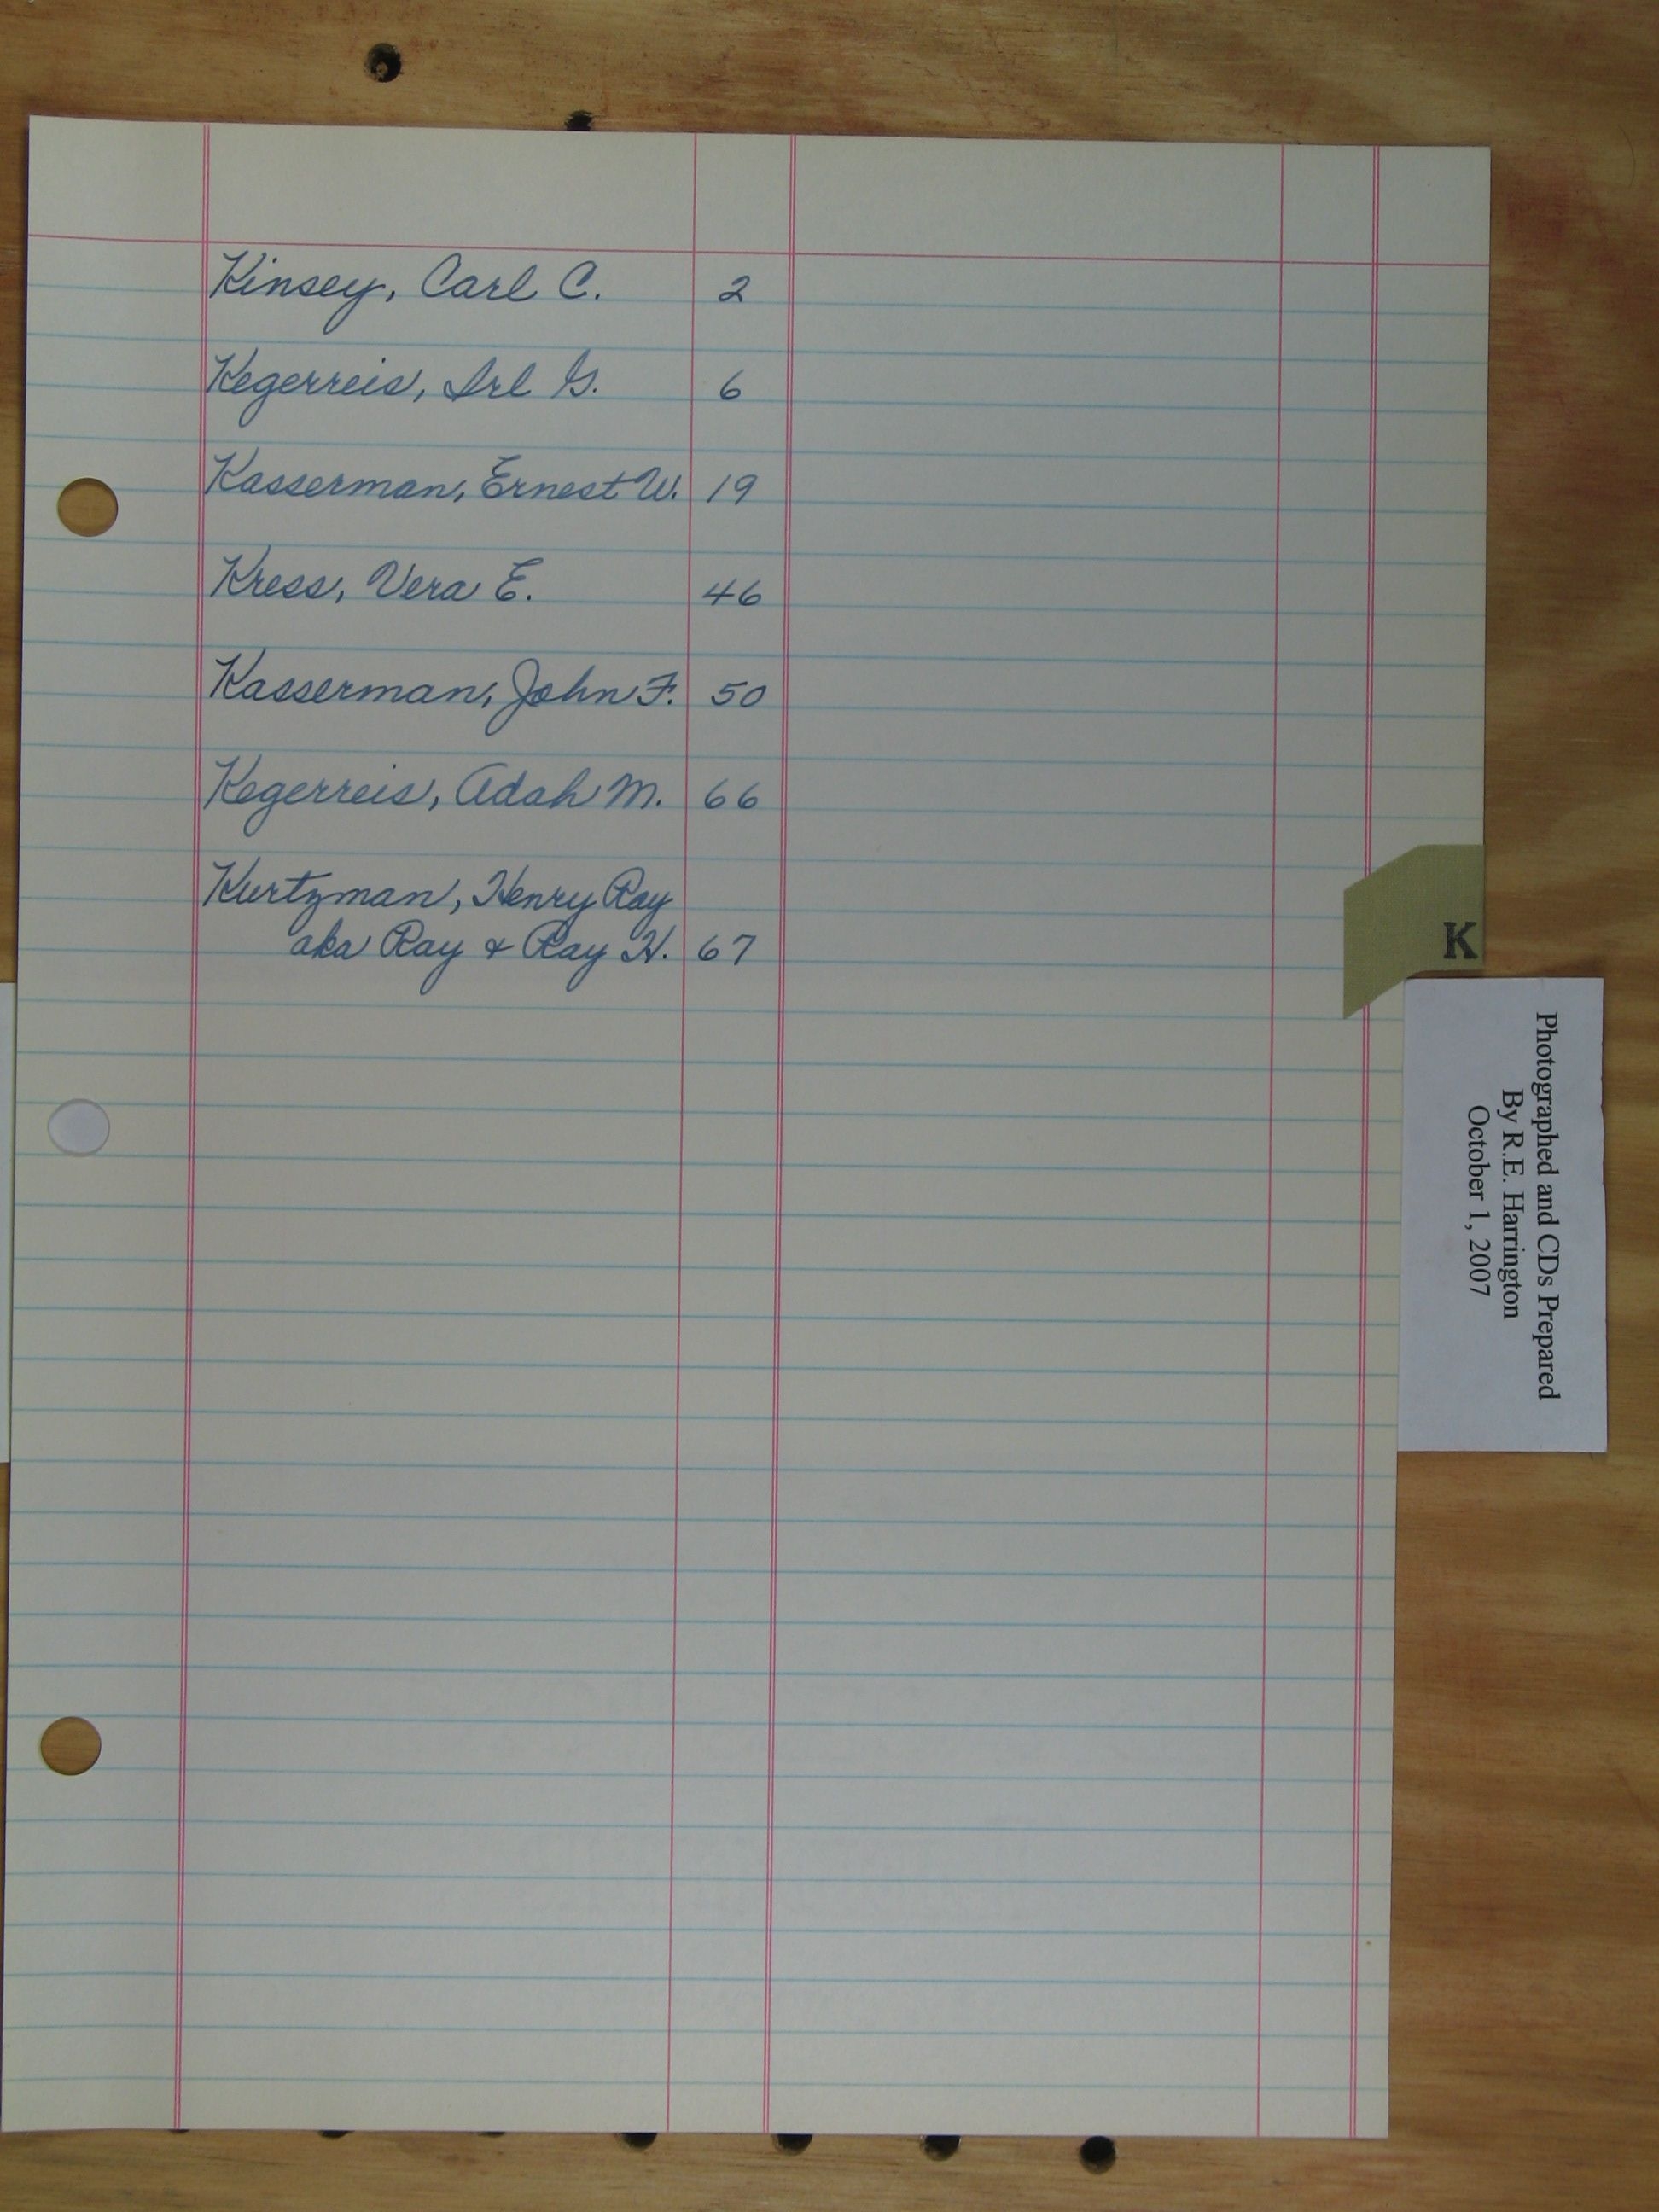 Kinsey, Carl C. 2
Kegerreis, Irl G. 6
Kasserman, Ernest W. 19
Kress, Vera E. 46
Kasserman, John F. 50
Kegerreis, Adah M. 66
Kurtzman, Henry Ray
aka Ray & Ray H. 67
K
Photographed and CDs Prepared
By R.E. Harrington
October 1, 2007